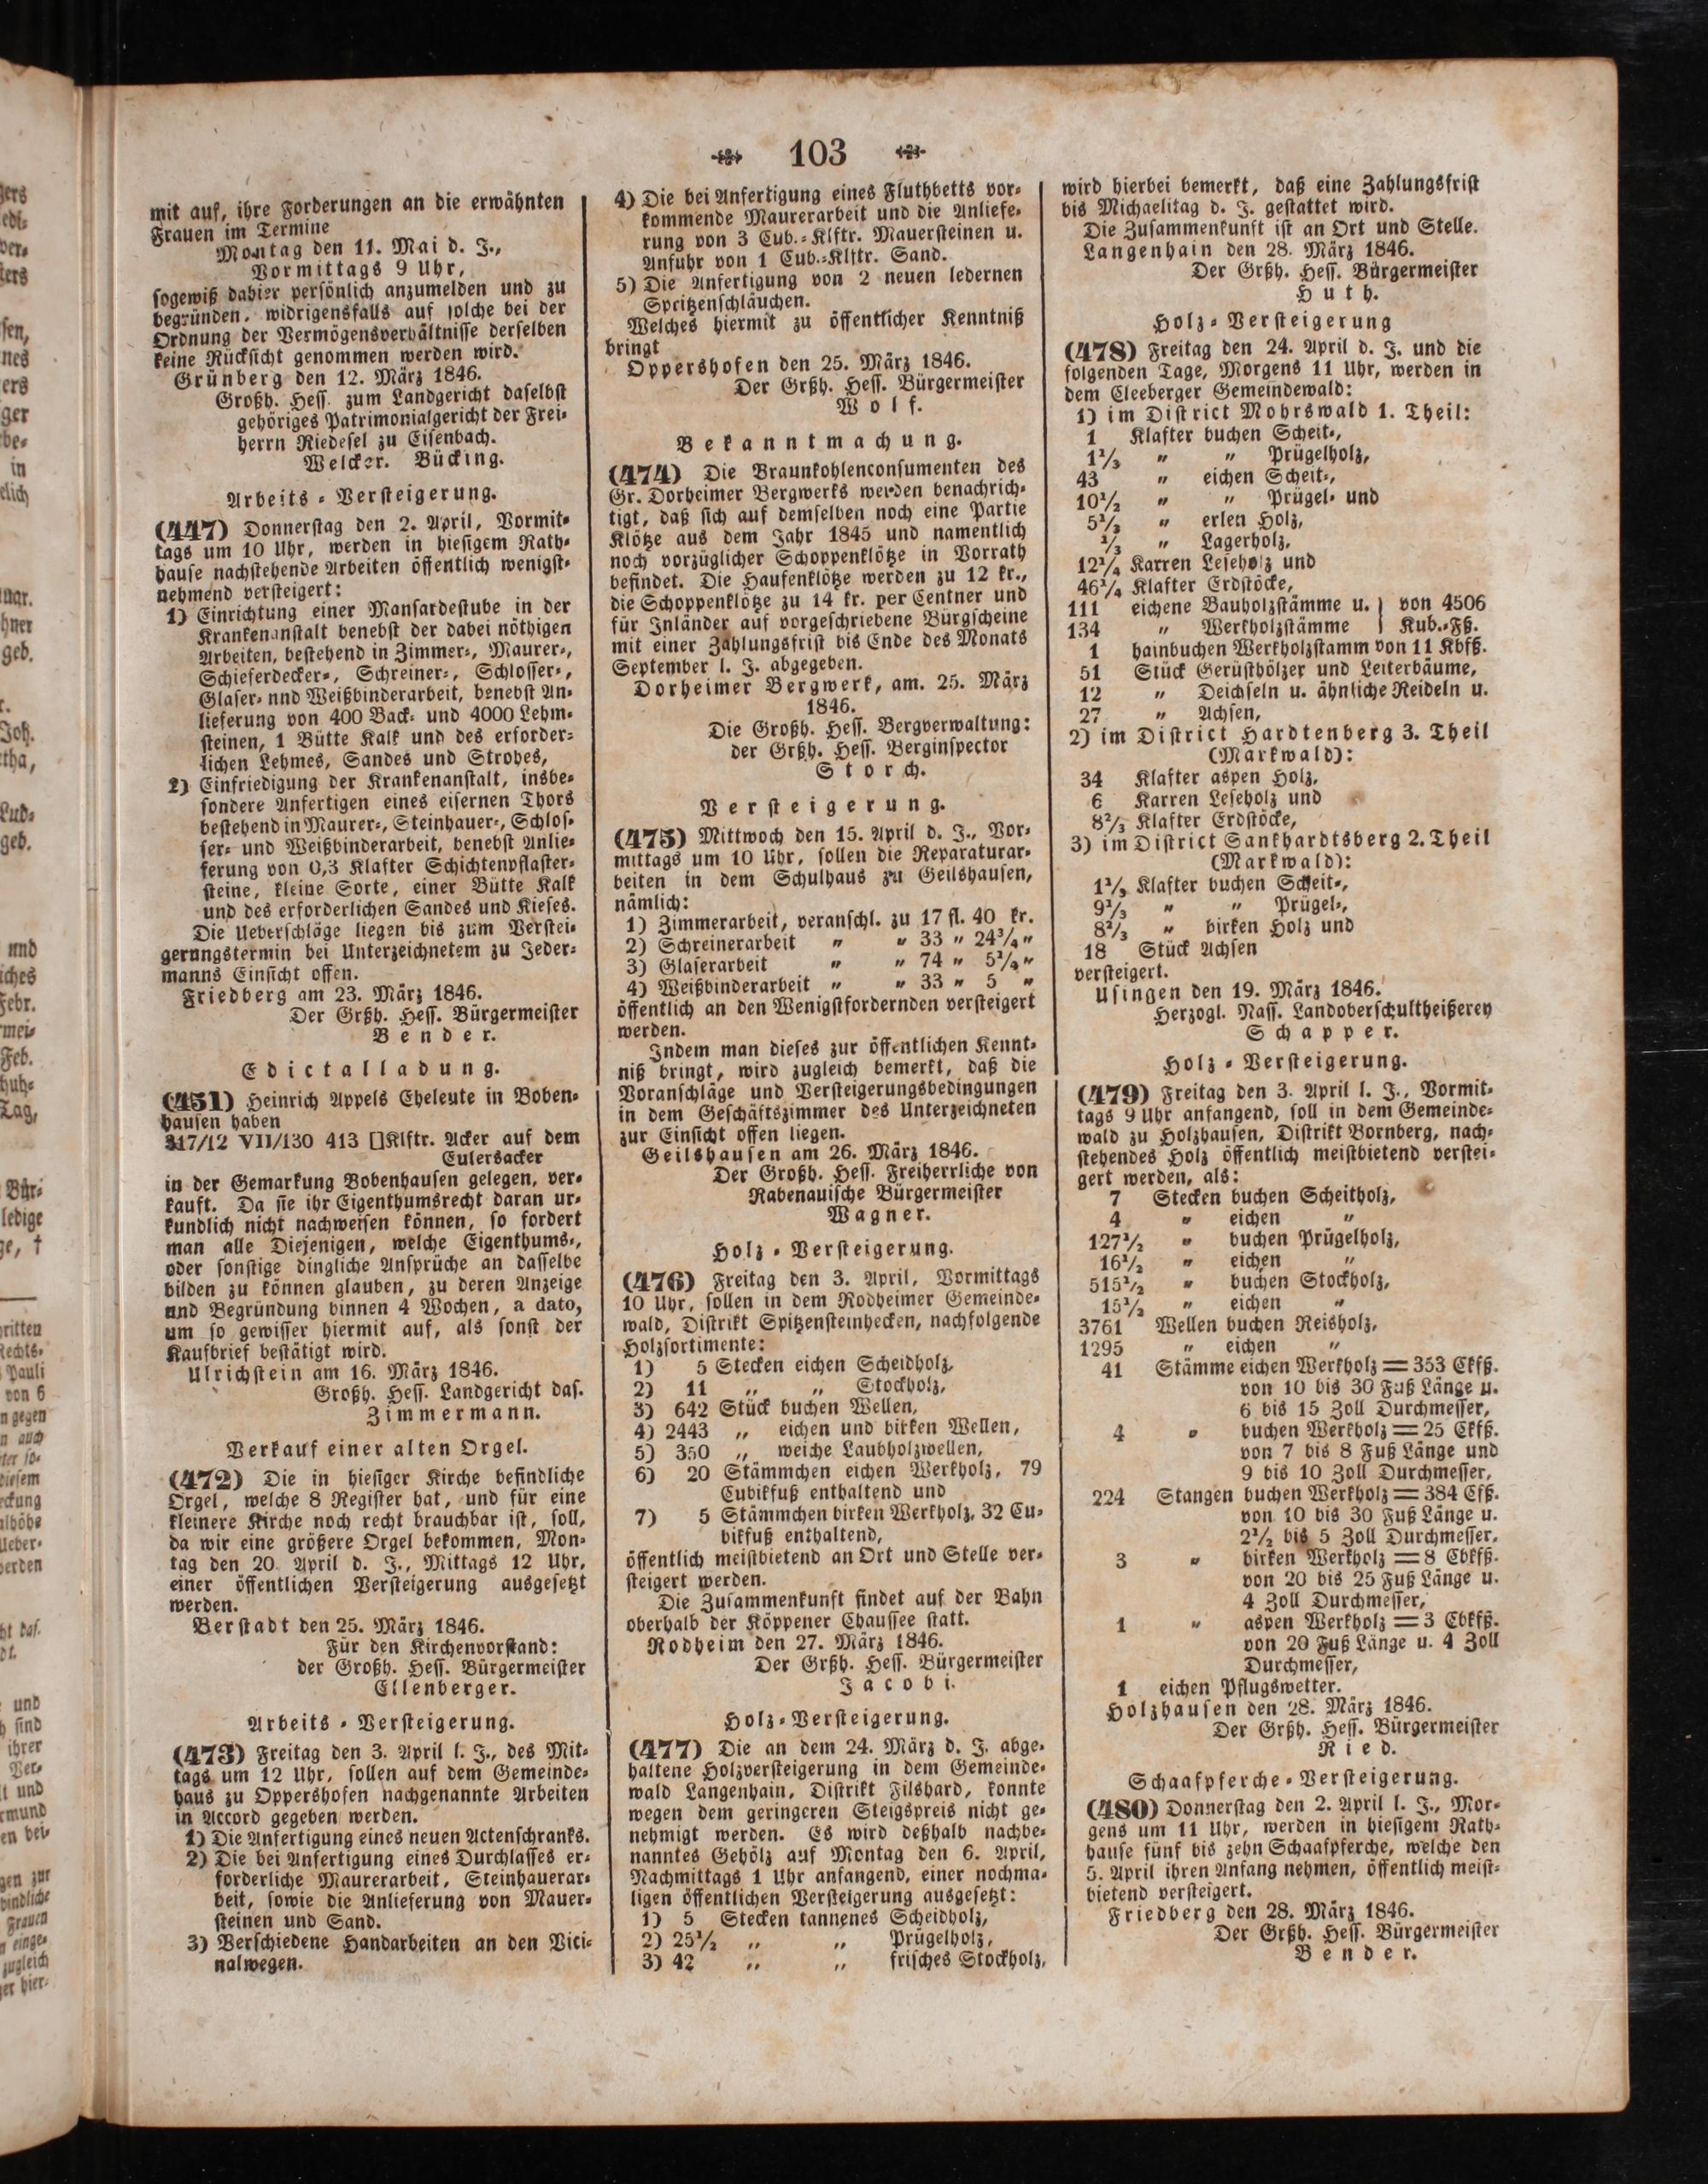 103
mit auf, ihre Forderungen an die erwähnten
Frauen im Termine
Montag den 11. Mai d. J.,
Vormittags 9 Uhr,
sogewiß dahier persönlich anzumelden und zu
begründen, widrigensfalls auf solche bei der
Ordnung der Vermögensverhältnisse derselben
keine Rücksicht genommen werden wird.
Grünberg den 12. März 1846.
Großh. Hess. zum Landgericht daselbst
gehöriges Patrimonialgericht der Frei-
herrn Riedesel zu Eisenbach.
Welcker. Bücking.
Arbeits-Versteigerung.
(447) Donnerstag den 2. April, Vormit-
tags um 10 Uhr, werden in hiesigem Rath-
hause nachstehende Arbeiten öffentlich wenigst-
nehmend versteigert:
1) Einrichtung einer Mansardestube in der
Krankenanstalt benebst der dabei nöthigen
Arbeiten, bestehend in Zimmer-, Maurer-,
Schieferdecker-, Schreiner-, Schlosser-,
Glaser- nnd Weißbinderarbeit, benebst An-
lieferung von 400 Back- und 4000 Lehm-
steinen, 1 Bütte Kalk und des erforder-
lichen Lehmes, Sandes und Strohes,
2) Einfriedigung der Krankenanstalt, insbe-
sondere Anfertigen eines eisernen Thors
bestehend in Maurer-, Steinhauer-, Schlos-
ser- und Weißbinderarbeit, benebst Anlie-
ferung von 0,3 Klafter Schichtenpflaster-
steine, kleine Sorte, einer Bütte Kalk
und des erforderlichen Sandes und Kieses.
Die Ueberschläge liegen bis zum Verstei-
gerungstermin bei Unterzeichnetem zu Jeder-
manns Einsicht offen.
Friedberg am 23. März 1846.
Der Grßh. Hess. Bürgermeister
Bender.
Edictalladung.
(451) Heinrich Appels Eheleute in Boben-
hausen haben
317/12 VII/130 413 □Klftr. Acker auf dem
Eulersacker
in der Gemarkung Bobenhausen gelegen, ver-
kauft. Da sie ihr Eigenthumsrecht daran ur-
kundlich nicht nachweisen können, so fordert
man alle Diejenigen, welche Eigenthums-,
oder sonstige dingliche Ansprüche an dasselbe
bilden zu können glauben, zu deren Anzeige
und Begründung binnen 4 Wochen, a dato,
um so gewisser hiermit auf, als sonst der
Kaufbrief bestätigt wird.
Ulrichstein am 16. März 1846.
Großh. Hess. Landgericht das.
Zimmermann.
Verkauf einer alten Orgel.
(472) Die in hiesiger Kirche befindliche
Orgel, welche 8 Register hat, und für eine
kleinere Kirche noch recht brauchbar ist, soll,
da wir eine größere Orgel bekommen, Mon-
tag den 20. April d. J., Mittags 12 Uhr,
einer öffentlichen Versteigerung ausgesetzt
werden.
Berstadt den 25. März 1846.
Für den Kirchenvorstand:
der Großh. Hess. Bürgermeister
Ellenberger.
Arbeits-Versteigerung.
(473) Freitag den 3. April l. J., des Mit-
tags um 12 Uhr, sollen auf dem Gemeinde-
haus zu Oppershofen nachgenannte Arbeiten
in Accord gegeben werden.
1) Die Anfertigung eines neuen Actenschranks.
2) Die bei Anfertigung eines Durchlasses er-
forderliche Maurerarbeit, Steinhauerar-
beit, sowie die Anlieferung von Mauer-
steinen und Sand.
3) Verschiedene Handarbeiten an den Vici-
nalwegen.
4) Die bei Anfertigung eines Fluthbetts vor-
kommende Maurerarbeit und die Anliefe-
rung von 3 Cub.-Klftr. Mauersteinen u.
Anfuhr von 1 Cub.-Klftr. Sand.
5) Die Anfertigung von 2 neuen ledernen
Spritzenschläuchen.
Welches hiermit zu öffentlicher Kenntniß
bringt
Oppershofen den 25. März 1846.
Der Grßh. Hess. Bürgermeister
Wolf.
Bekanntmachung.
(474) Die Braunkohlenconsumenten des
Gr. Dorheimer Bergwerks werden benachrich-
tigt, daß sich auf demselben noch eine Partie
Klötze aus dem Jahr 1845 und namentlich
noch vorzüglicher Schoppenklötze in Vorrath
befindet. Die Haufenklötze werden zu 12 kr.,
die Schoppenklötze zu 14 kr. per Centner und
für Inländer auf vorgeschriebene Bürgscheine
mit einer Zahlungsfrist bis Ende des Monats
September l. J. abgegeben.
Dorheimer Bergwerk, am. 25. März
1846.
Die Großh. Hess. Bergverwaltung:
der Grßh. Hess. Berginspector
Storch.
Versteigerung.
(475) Mittwoch den 15. April d. J., Vor-
mittags um 10 Uhr, sollen die Reparaturar-
beiten in dem Schulhaus zu Geilshausen,
nämlich:
1) Zimmerarbeit, veranschl. zu 17 fl. 40 kr.
2) Schreinerarbeit " " 33 " 24 3/4 "
3) Glaserarbeit " " 74 " 5 1/4 "
4) Weißbinderarbeit " " 33 " 5 "
öffentlich an den Wenigstfordernden versteigert
werden.
Indem man dieses zur öffentlichen Kennt-
niß bringt, wird zugleich bemerkt, daß die
Voranschläge und Versteigerungsbedingungen
in dem Geschäftszimmer des Unterzeichneten
zur Einsicht offen liegen.
Geilshausen am 26. März 1846.
Der Großh. Hess. Freiherrliche von
Rabenauische Bürgermeister
Wagner.
Holz-Versteigerung.
(476) Freitag den 3. April, Vormittags
10 Uhr, sollen in dem Rodheimer Gemeinde-
wald, Distrikt Spitzensteinhecken, nachfolgende
Holzsortimente:
1) 5 Stecken eichen Scheidholz,
2) 11 „ „ Stockholz,
3) 642 Stück buchen Wellen,
4) 2443 „ eichen und birken Wellen,
5) 350 „ weiche Laubholzwellen,
6) 20 Stämmchen eichen Werkholz, 79
Cubikfuß enthaltend und
7) 5 Stämmchen birken Werkholz, 32 Cu-
bikfuß enthaltend,
öffentlich meistbietend an Ort und Stelle ver-
steigert werden.
Die Zusammenkunft findet auf der Bahn
oberhalb der Köppener Chaussee statt.
Rodheim den 27. März 1846.
Der Grßh. Hess. Bürgermeister
Jacobi.
Holz-Versteigerung.
(477) Die an dem 24. März d. J. abge-
haltene Holzversteigerung in dem Gemeinde-
wald Langenhain, Distrikt Filshard, konnte
wegen dem geringeren Steigspreis nicht ge-
nehmigt werden. Es wird deßhalb nachbe-
nanntes Gehölz auf Montag den 6. April,
Nachmittags 1 Uhr anfangend, einer nochma-
ligen öffentlichen Versteigerung ausgesetzt:
1) 5 Stecken tannenes Scheidholz,
2) 25 1/2 „ „ Prügelholz,
3) 42 „ „ frisches Stockholz,
wird hierbei bemerkt, daß eine Zahlungsfrist
bis Michaelitag d. J. gestattet wird.
Die Zusammenkunft ist an Ort und Stelle.
Langenhain den 28. März 1846.
Der Grßh. Hess. Bürgermeister
Huth.
Holz-Versteigerung
(478) Freitag den 24. April d. J. und die
folgenden Tage, Morgens 11 Uhr, werden in
dem Cleeberger Gemeindewald:
1) im District Mohrswald 1. Theil:
1 Klafter buchen Scheit-,
1 1/3 " " Prügelholz,
43 " eichen Scheit-,
10 1/2 " " Prügel- und
5 1/3 " erlen Holz,
" Lagerholz,
12 1/4 Karren Leseholz und
46 1/4 Klafter Erdstöcke,
111 eichene Bauholzstämme u. } von 4506
134 " Werkholzstämme } Kub.-Fß.
1 hainbuchen Werkholzstamm von 11 Kbfß.
51 Stück Gerüsthölzer und Leiterbäume,
12 " Deichseln u. ähnliche Reideln u.
27 " Achsen,
2) im District Hardtenberg 3. Theil
(Markwald):
34 Klafter aspen Holz,
6 Karren Leseholz und
8 2/3 Klafter Erdstöcke,
3) im District Sankhardtsberg 2. Theil
(Markwald):
1 1/3 Klafter buchen Scheit-,
9 1/3 " " Prügel-,
8 2/3 " birken Holz und
18 Stück Achsen
versteigert.
Usingen den 19. März 1846.
Herzogl. Nass. Landoberschultheißerey
Schapper.
Holz-Versteigerung.
(479) Freitag den 3. April l. J., Vormit-
tags 9 Uhr anfangend, soll in dem Gemeinde-
wald zu Holzhausen, Distrikt Bornberg, nach-
stehendes Holz öffentlich meistbietend verstei-
gert werden, als:
7 Stecken buchen Scheitholz,
4 " eichen "
127 1/2 " buchen Prügelholz,
16 1/2 " eichen "
515 1/2 " buchen Stockholz,
15 1/2 " eichen "
3761 Wellen buchen Reisholz,
1295 " eichen "
41 Stämme eichen Werkholz = 353 Ckfß.
von 10 bis 30 Fuß Länge u.
6 bis 15 Zoll Durchmesser,
4 " buchen Werkholz = 25 Ckfß.
von 7 bis 8 Fuß Länge und
9 bis 10 Zoll Durchmesser,
224 Stangen buchen Werkholz = 384 Cfß.
von 10 bis 30 Fuß Länge u.
2 1/2 bis 5 Zoll Durchmesser,
3 " birken Werkholz = 8 Cbkfß.
von 20 bis 25 Fuß Länge u.
4 Zoll Durchmesser,
1 " aspen Werkholz = 3 Cbkfß.
von 20 Fuß Länge u. 4 Zoll
Durchmesser,
1 eichen Pflugswetter.
Holzhausen den 28. März 1846.
Der Grßh. Hess. Bürgermeister
Ried.
Schaafpferche-Versteigerung.
(480) Donnerstag den 2. April l. J., Mor-
gens um 11 Uhr, werden in hiesigem Rath-
hause fünf bis zehn Schaafpferche, welche den
5. April ihren Anfang nehmen, öffentlich meist-
bietend versteigert.
Friedberg den 28. März 1846.
Der Grßh. Hess. Bürgermeister
Bender.